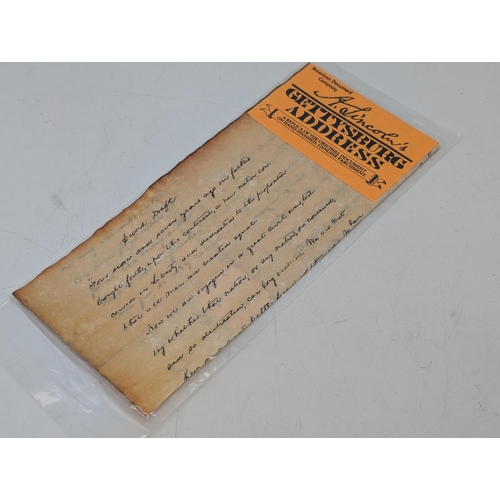 American Document
Company
A. Lincoln's
GETTYSBURG
ADDRESS
A REPLICA OF THE ORIGINAL DOCUMENT
ON HANDSOME GENUINE PARCHMENT
Second Draft
Four score and seven years ago our fathers
brought forth, upon this continent, a new nation, con-
ceived in Liberty, and dedicated to the proposition
that all men are created equal.
Now we are engaged in a great civil war, test-
ing whether that nation, or any nation, so conceived,
and so dedicated, can long endure. We are met